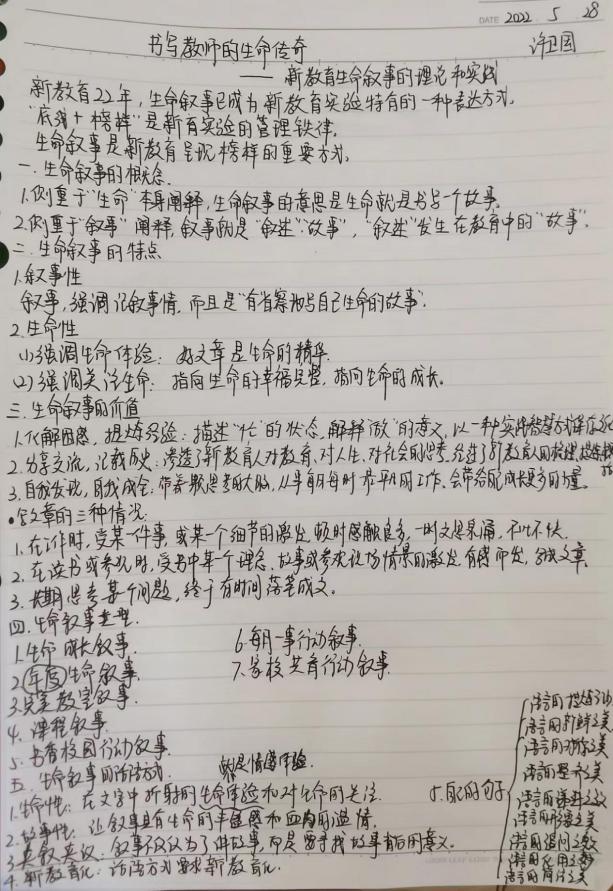 DATE 2022 5 28
书写教师的生命传奇 许卫国
—— 新教育生命叙事的理论和实践
新教育22年，生命叙事已成为新教育实验特有的一种表达方式。
"底线+榜样"是新教育实验的管理铁律。
生命叙事是新教育呈现榜样的重要方式。
一.生命叙事的概念
1.侧重于"生命"本身阐释，生命叙事的意思是生命就是书写一个故事。
2.侧重于"叙事"阐释，叙事就是"叙述""故事"，"叙述"发生在教育中的"故事"。
二.生命叙事的特点
1.叙事性
叙事，强调记叙事情，而且是"有省察地写自己生命的故事"。
2.生命性
(1)强调生命体验：好文章是生命的精华。
(2)强调关注生命：指向生命的幸福完整，指向生命的成长。
三.生命叙事的价值
1.化解困惑，提炼经验：描述"忙"的状态，解释"做"的意义，以一种实践智慧方式
2.分享交流，记载历史：渗透了新教育人对教育、对人生、对社会的思考，
3.自我发现，自我成全：带着思考的大脑，从事每日每时最平凡的工作，会带给 成长更多的力量。
•写文章的三种情况：
1.在工作时，受某一件事，或某一个细节的激发，顿时感触良多，一时文思泉涌，不吐不快。
2.在读书或参观时，受书中某一个理念、故事或参观现场情景的激发，有感而发，写成文章。
3.长期思考某个问题，终于有时间落笔成文。
四.生命叙事类型
1.生命成长叙事。 6.每月一事行动叙事.
2.年度生命叙事. 7.家校共育行动叙事.
3.完美教室叙事.
4.课程叙事
5.书香校园行动叙事.
五.生命叙事的 方式. 情感体验.
1.生命性：在文字中折射的生命体验和对生命的关注.
2.故事性：让叙事具有生命的丰盈感和 的温情.
3.关叙关议：叙事不仅仅为了讲故事，而是要寻找故事背后的意义。
4.新教育化： 方式要求新教育化.
5. 的句子
语言的 之美
语言的新鲜之美
语言的 之美
语言的 之美
语言的递进之美
语言的 之美
语言的追问之美
语言的 之美
语言的简洁之美